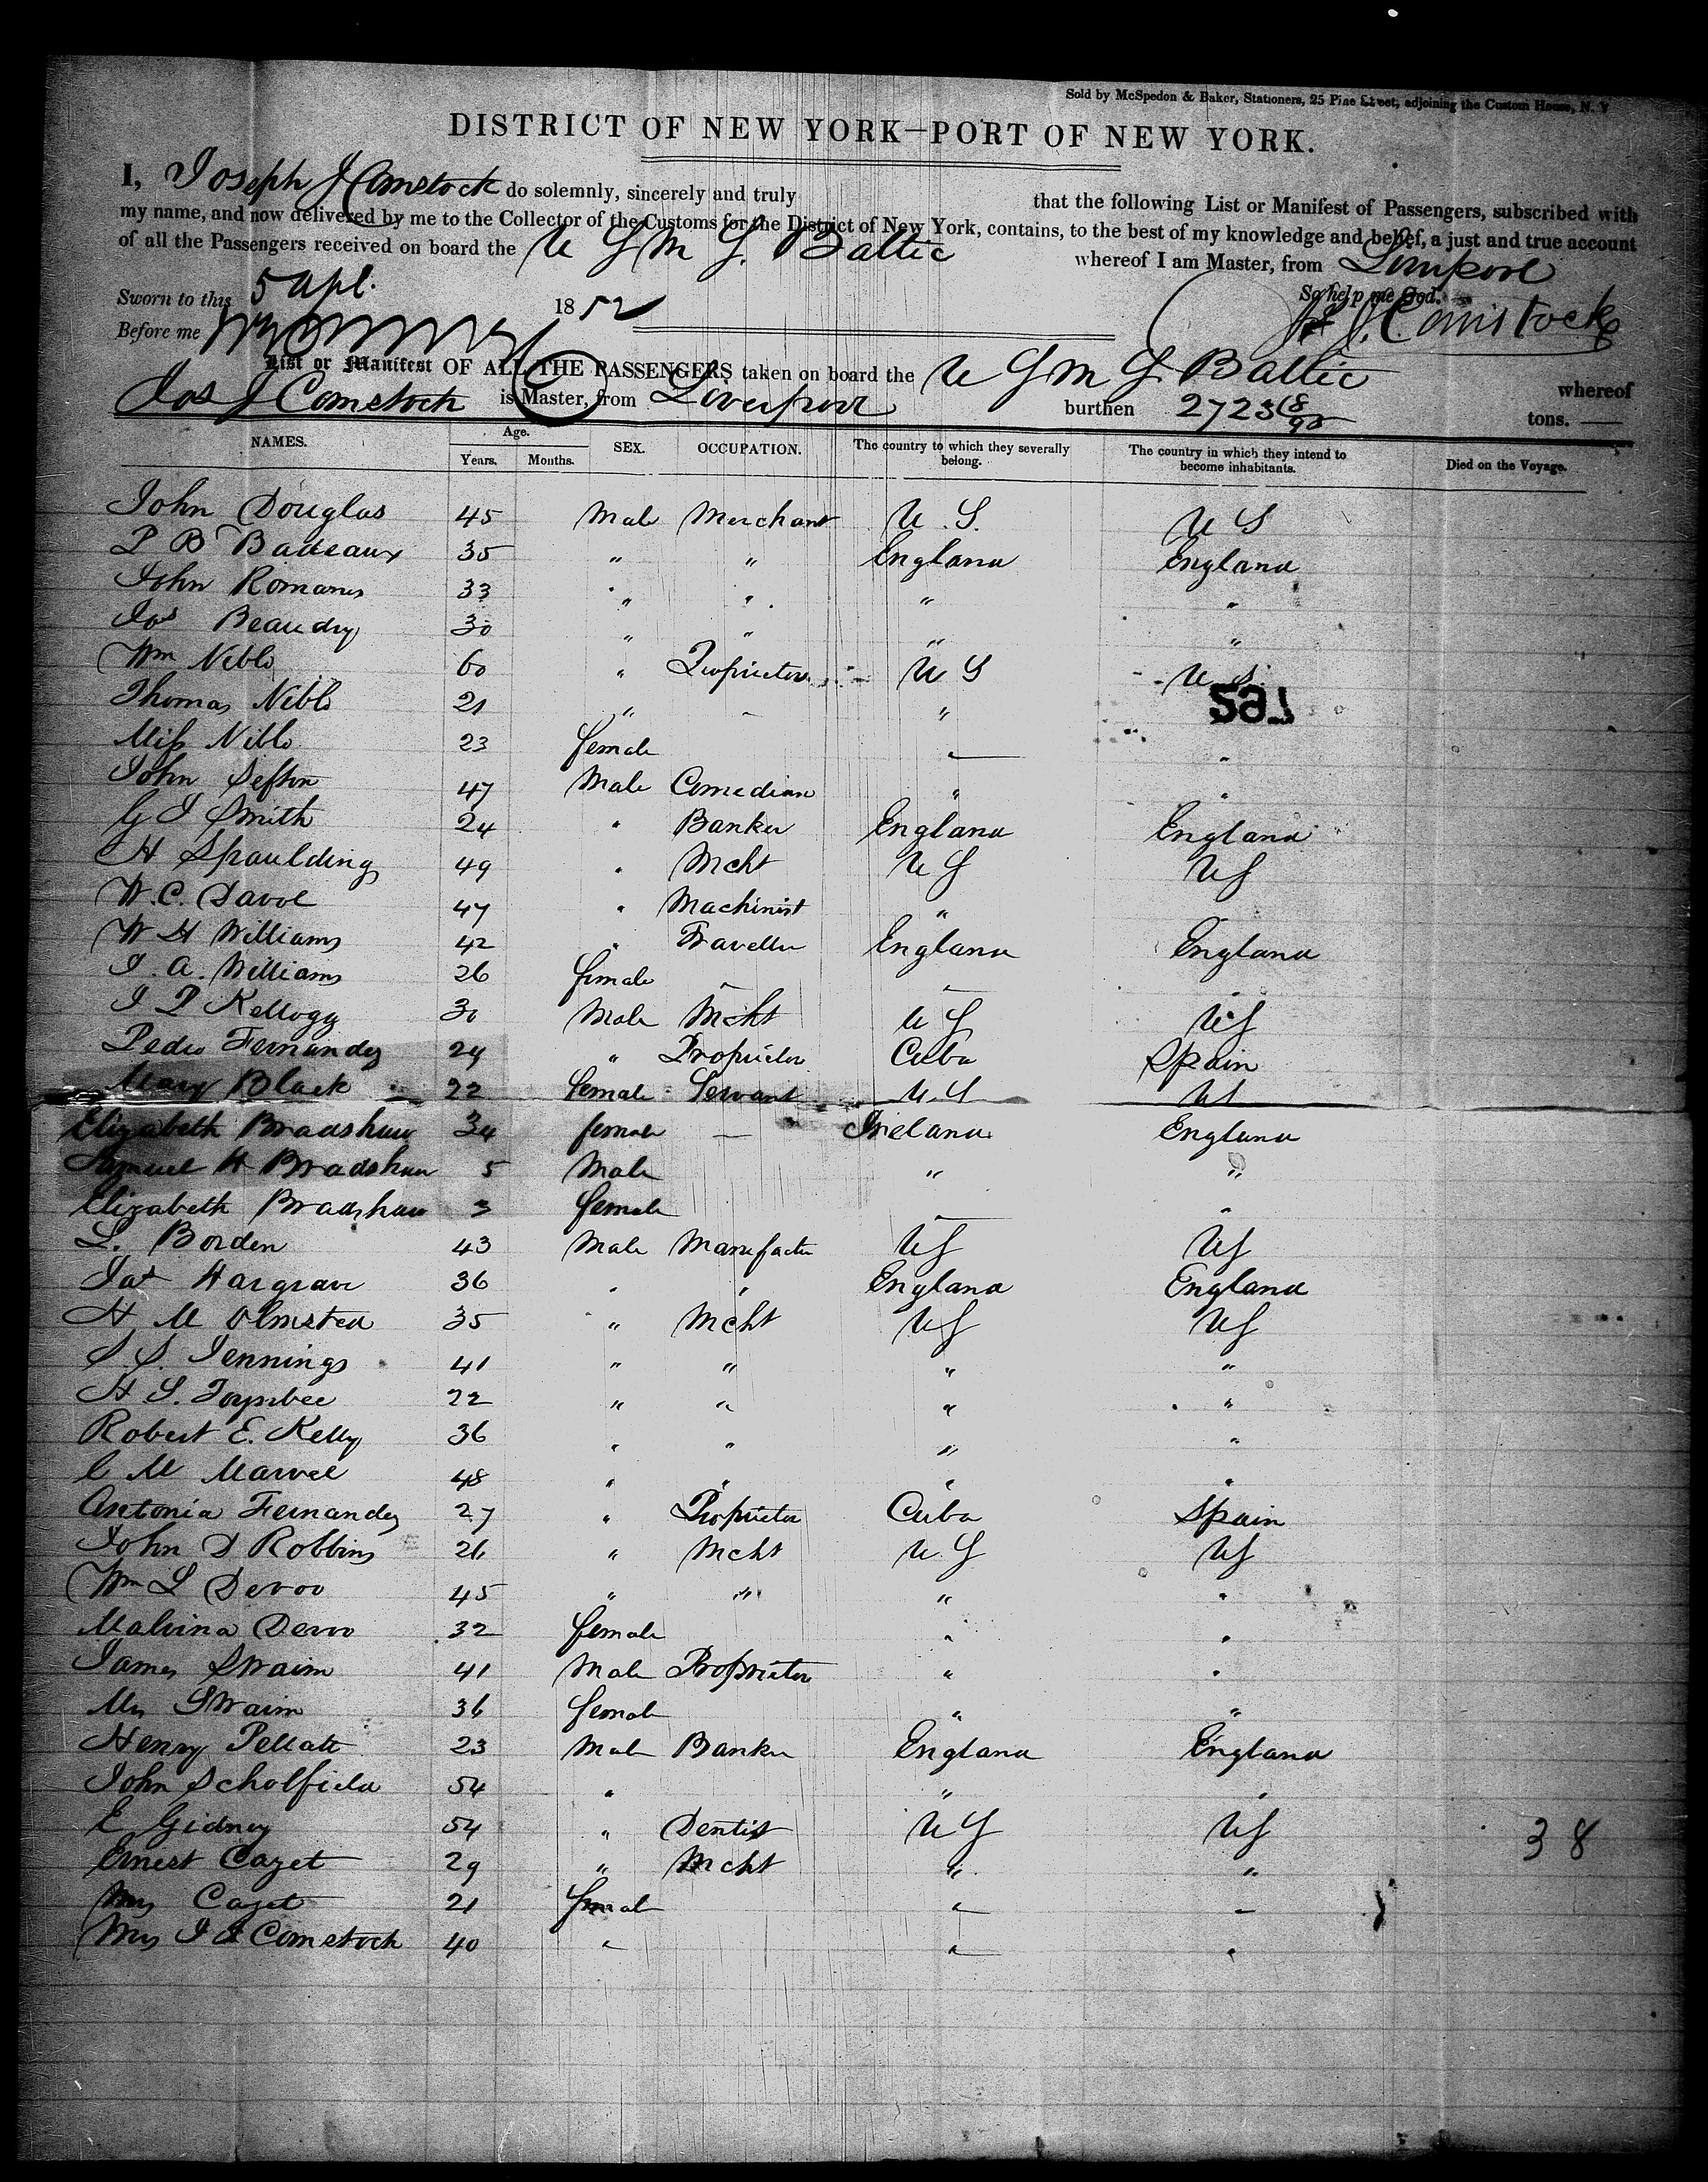 Sold by McSpedon & Baker, Stationers, 25 Pine Street, adjoining the Custom House, N. Y
DISTRICT OF NEW YORK—PORT OF NEW YORK.
I, Joseph J Comstock do solemnly, sincerely and truly that the following List or Manifest of Passengers, subscribed with
my name, and now delivered by me to the Collector of the Customs for the District of New York, contains, to the best of my knowledge and belief, a just and true account
of all the Passengers received on board the U S M S. Baltic whereof I am Master, from Liverpool
Sworn to this 5 Apl. 1852 So help me God.
Before me J. J. Comstock
List or Manifest OF ALL THE PASSENGERS taken on board the U S M S Baltic whereof
Jos J Comstock is Master, from Liverpool burthen 2723 tons.
NAMES. Age. Years. Months. SEX. OCCUPATION. The country to which they severally belong. The country in which they intend to become inhabitants. Died on the Voyage.
John Douglas 45 Male Merchant U.S. U S
P B Badeaux 35 " " England England
John Romanes 33 " " " "
Jos Beaudry 30 " " " "
Wm Niblo 60 " Proprietor U S U S.
Thomas Niblo 21 " "
Miss Niblo 23 female "
John Sefton 47 Male Comedian " "
G J Smith 24 " Banker England England
H Spaulding 49 " Mcht U S US
W.C. Davol 47 " Machinist "
W H Williams 42 " Traveller England England
J. A. Williams 26 female
J P Kellogg 30 Male Mcht U S US
Pedro Fernandez 24 " Proprietor Cuba Spain
Mary Black 22 female Servant U.S US
Elizabeth Bradshaw 34 female — Ireland England
Samuel H Bradshaw 5 Male " "
Elizabeth Bradshaw 3 female "
L. Borden 43 Male Manufactu US US
Jas Hargrave 36 " " England England
H M Olmsted 35 " Mcht US US
S. S. Jennings 41 " " " "
H S. Toynbee 22 " " " "
Robert E. Kelly 36 " " " "
C M Marvel 48 " " " "
Antonia Fernandez 27 " Proprietor Cuba Spain
John D Robbins 26 " Mcht U.S US
Wm L Devoo 45 " " " "
Malvina Devoo 32 female " "
James Swaim 41 Male Proprietor " "
Mrs Swaim 36 female " "
Henry Pellatt 23 Male Banker England England
John Scholfield 54 " " "
E Gidney 54 " Dentist U S US
Ernest Cazet 29 " Mcht " "
38
Mrs Cazet 21 female " "
Mrs J J Comstock 40 " " "